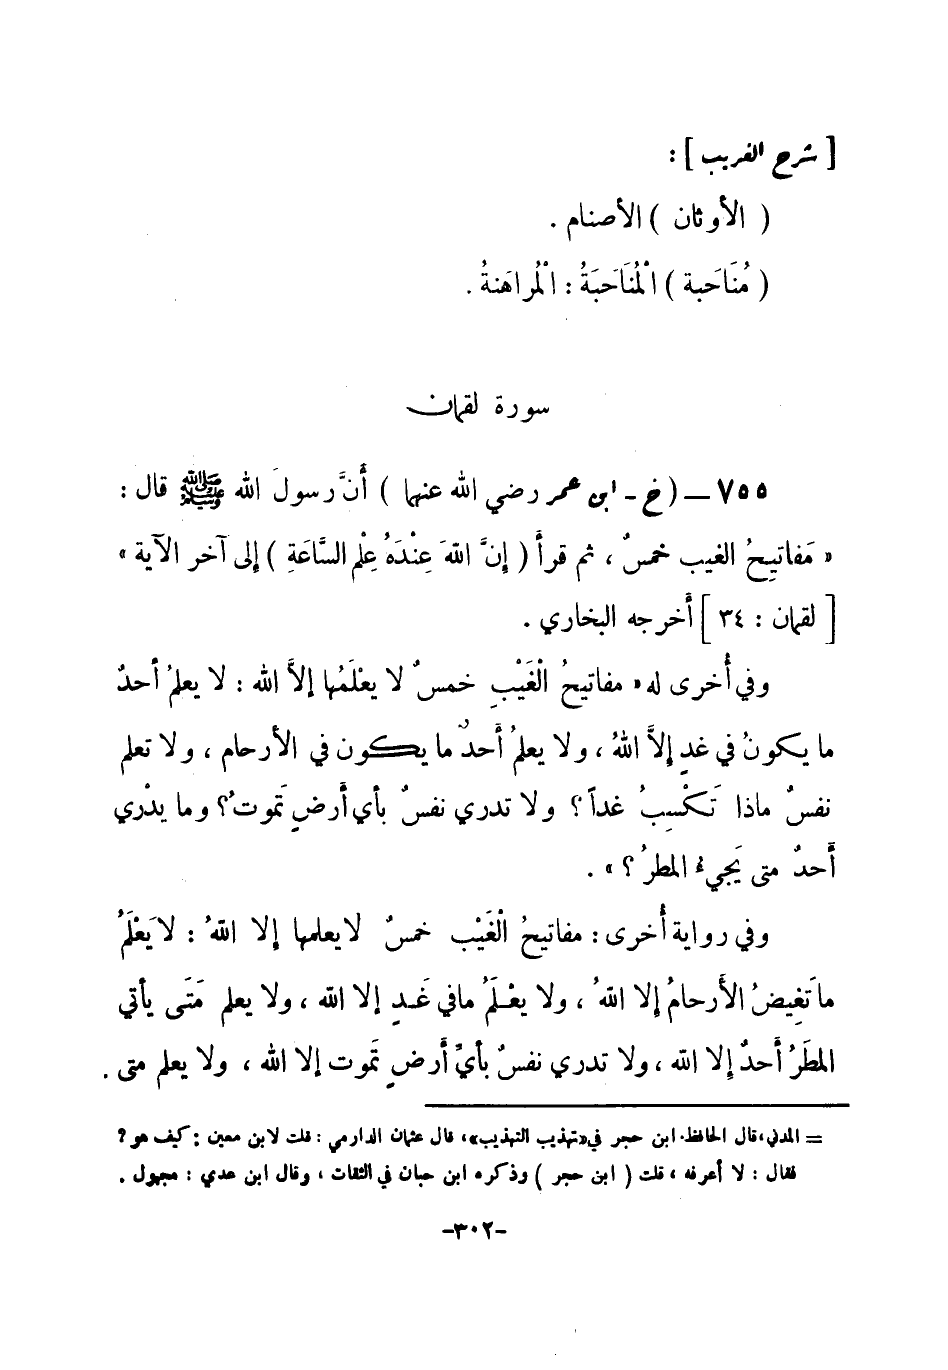 [ شرح الغريب ] :
( الأوثان ) الأصنام .
( مُنَاحَبة ) الْمُنَاحَبَةُ : الْمُراهَنةُ .
سورة لقمان
٧٥٥ – ( خ - ابن عمر رضي الله عنهما ) أَنَّ رسولَ الله ﷺ قال :
« مَفاتيحُ الغيب خمسٌ ، ثم قرأَ ( إِنَّ اللهَ عِنْدَهُ عِلْم السَّاعَةِ ) إِلى آخر الآية »
[ لقمان : ٣٤ ] أَخرجه البخاري .
وفي أُخرى له « مفاتيحُ الْغَيْبِ خمسٌ لا يعْلَمُها إِلاَّ الله : لا يعلمُ أحدٌ
ما يكونُ في غدٍ إِلاَّ اللهُ ، ولا يعلمُ أَحدٌ ما يكون في الأرحام ، ولا تعلم
نفسٌ ماذا تَكْسِبُ غداً ؟ ولا تدري نفسٌ بأي أَرضٍ تَموتُ ؟ وما يدْري
أَحدٌ متى يَجيءُ المطرُ ؟ » .
وفي رواية أُخرى : مفاتيحُ الْغَيْب خمسٌ لايعلمها إِلا اللهُ : لا يَعْلَمُ
ما تَغِيضُ الأَرحامُ إِلا اللهُ ، ولا يعْلَمُ مافي غَدٍ إلا الله ، ولا يعلم مَتَى يأتي
المطَرُ أَحدٌ إِلا الله ، ولا تدري نفسٌ بأَيِّ أَرضٍ تَموت إلا الله ، ولا يعلم متى .
= المدني ، قال الحافظ ابن حجر في « تهذيب التهذيب » ، قال عثمان الدارمي : قلت لابن معين : كيف هو ؟
فقال : لا أعرفه ، قلت ( ابن حجر ) وذكره ابن حبان في الثقات ، وقال ابن عدي : مجهول .
-٣٠٢-